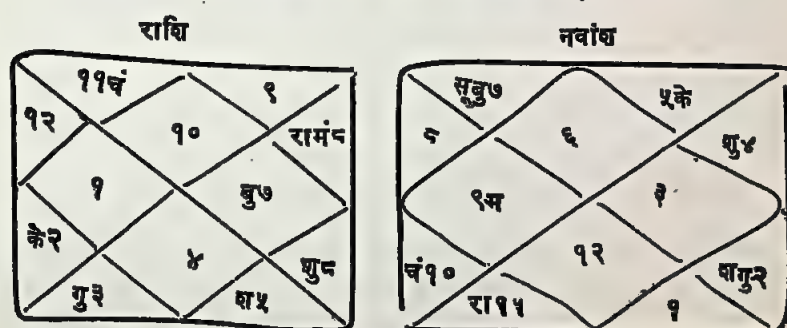 राशि
नवांश
११चं
९
१२
१०
रामं८
१
बु७
के२
४
शु८
गु३
श५
सूबु७
५के
८
६
शु४
९म
३
चं१०
१२
शगु२
रा११
१